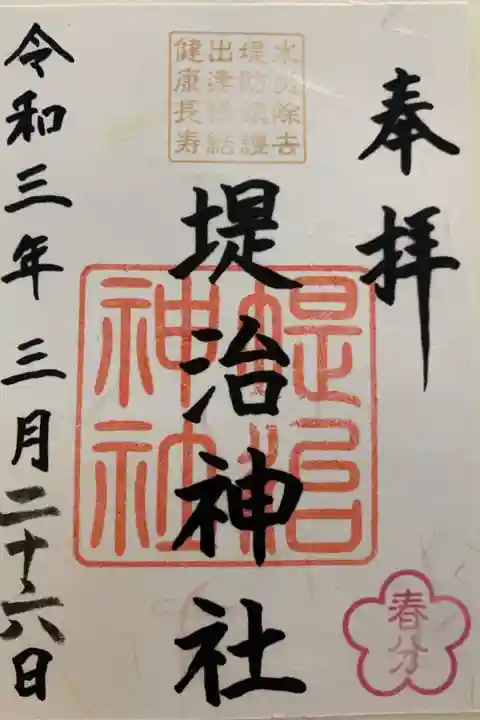 奉拝
水難除去
堤防鎮護
健康長寿
堤治神社
堤治
神社
令和三年三月二十六日
春分